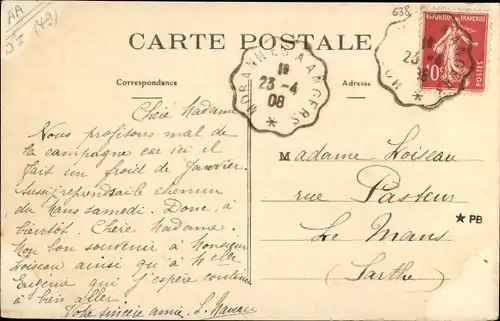 AA
1491
638
CARTE POSTALE
Correspondance
Adresse
MORANNES A ANGERS
1E
23 -4
08
REPUBLIQUE FRANÇAISE
10
POSTES
Chère Madame
Nous profitons mal de
la campagne car ici il
fait un froid de Janvier.
Aussi reprendrai le chemin
du Mans samedi. Donc, à
bientôt. Chère Madame.
Mon bon souvenir à Monsieur
Loiseau ainsi qu'à Melle
Eugénie qui j'espère continue
à bien aller.
Votre sincère amie. L.
Madame Loiseau
rue Pasteur
Le Mans
(Sarthe)
★ PB